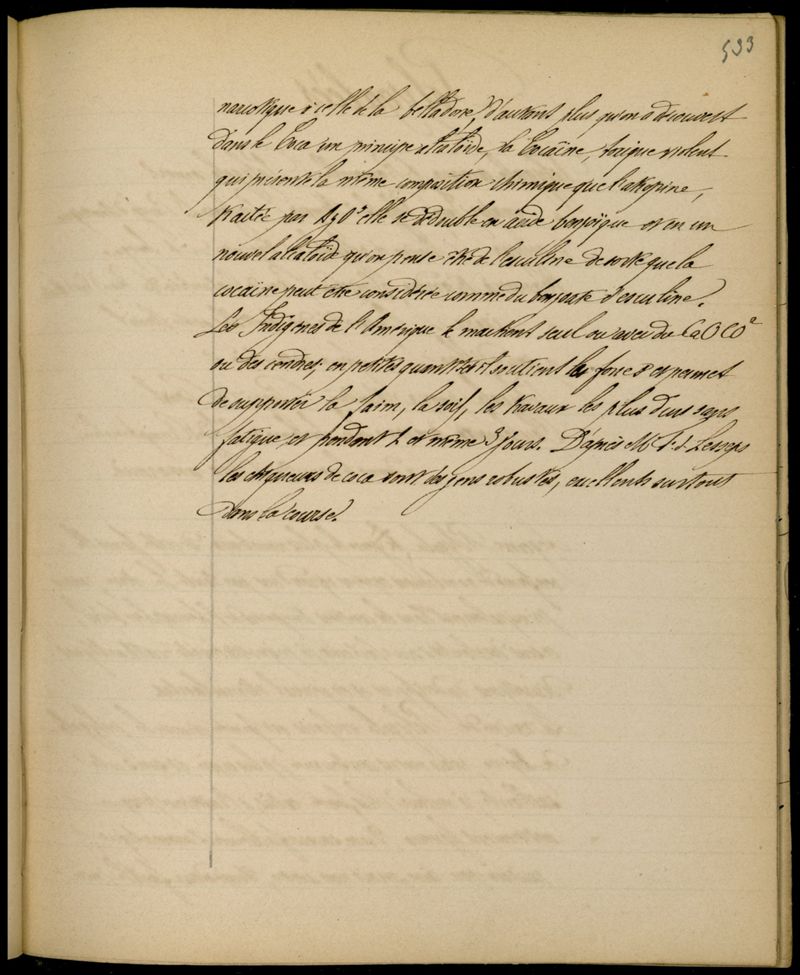 533
narcotique à celle de la belladone, d'autant plus qu'on a découvert
dans le Coca un principe alcaloïde, la Cocaïne, toxique violent
qui présente la même composition chimique que l'atropine,
traitée par AzO⁵ elle se dédouble en acide benzoïque et en un
nouvel alcaloïde qu'on pense être de l'esculine de sorte que la
cocaïne peut être considérée comme du benzoate d'esculine.
Les Indigènes de l'Amérique le machent seul ou avec du CaOCO²
ou des cendres, en petites quantités il soutient les forces et permet
de supporter la faim, la soif, les travaux les plus durs sans
fatigue, et pendant 2 et même 3 jours. D'après Mr Lesseps
les chiqueurs de coca sont des gens robustes, excellents surtout
dans la course.